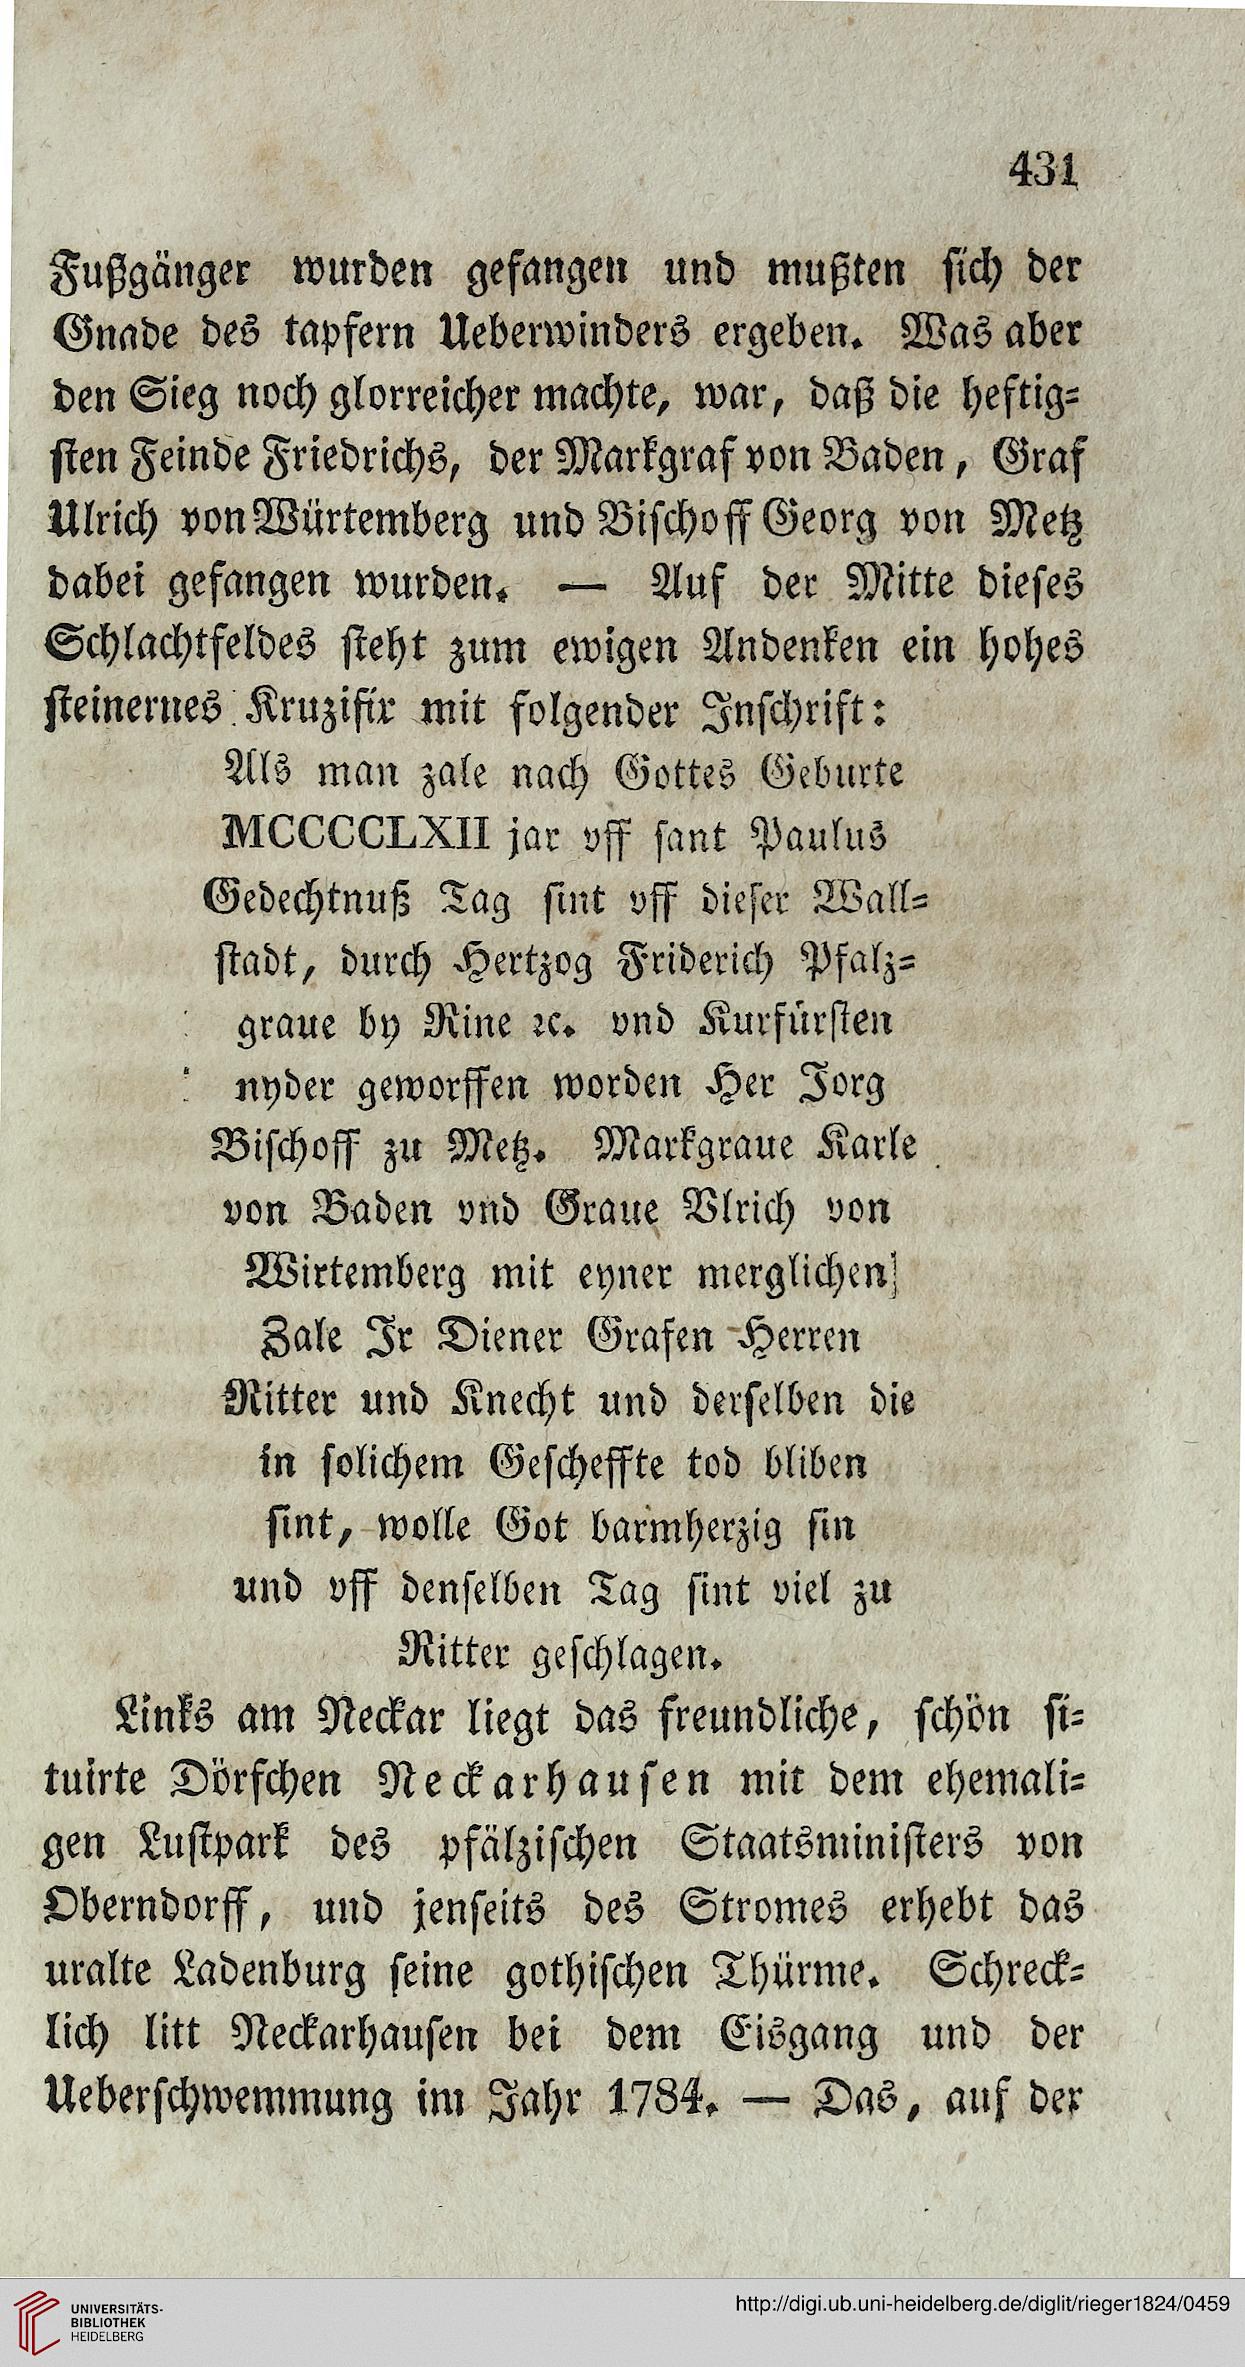 431
Fußgänger wurden gefangen und mußten sich der
Gnade des tapfern Ueberwinders ergeben. Was aber
den Sieg noch glorreicher machte, war, daß die heftig=
sten Feinde Friedrichs, der Markgraf von Baden, Graf
Ulrich von Würtemberg und Bischoff Georg von Metz
dabei gefangen wurden. — Auf der Mitte dieses
Schlachtfeldes steht zum ewigen Andenken ein hohes
steinernes Kruzifix mit folgender Inschrift:
Als man zale nach Gottes Geburte
MCCCCLXII jar vff sant Paulus
Gedechtnuß Tag sint vff dieser Wall=
stadt, durch Hertzog Friderich Pfalz=
graue by Rine ꝛc. vnd Kurfürsten
nyder geworffen worden Her Jorg
Bischoff zu Metz. Markgraue Karle
von Baden vnd Graue Vlrich von
Wirtemberg mit eyner merglichen
Zale Ir Diener Grafen Herren
Ritter und Knecht und derselben die
in solichem Gescheffte tod bliben
sint, wolle Got barmherzig sin
und vff denselben Tag sint viel zu
Ritter geschlagen.
Links am Neckar liegt das freundliche, schön si=
tuirte Dörfchen Neckarhausen mit dem ehemali=
gen Lustpark des pfälzischen Staatsministers von
Oberndorff, und jenseits des Stromes erhebt das
uralte Ladenburg seine gothischen Thürme. Schreck=
lich litt Neckarhausen bei dem Eisgang und der
Ueberschwemmung im Jahr 1784. — Das, auf der
UNIVERSITÄTS-
BIBLIOTHEK
HEIDELBERG
http://digi.ub.uni-heidelberg.de/diglit/rieger1824/0459